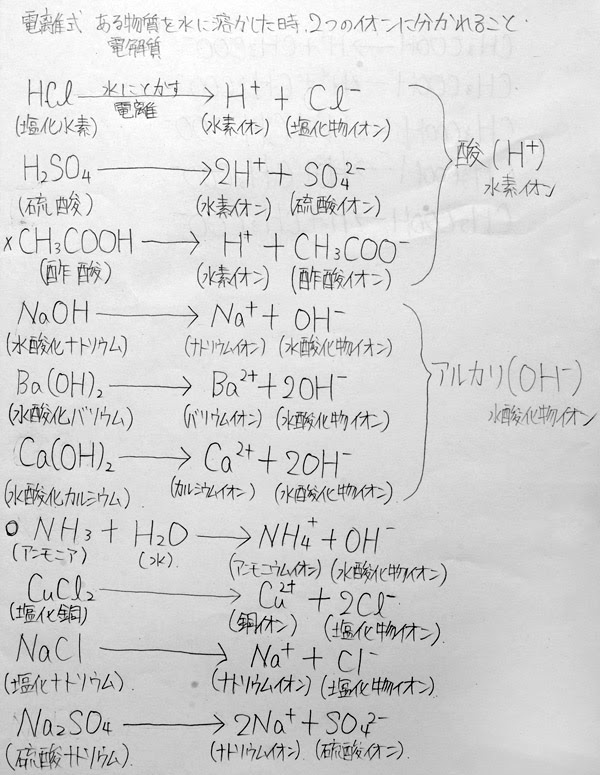 電離式 ある物質を水に溶かした時、2つのイオンに分かれること.
電解質
HCl 水にとかす 電離 → H⁺ + Cl⁻
(塩化水素) (水素イオン) (塩化物イオン)
酸(H⁺)
水素イオン
H₂SO₄ → 2H⁺ + SO₄²⁻
(硫酸) (水素イオン) (硫酸イオン)
×CH₃COOH → H⁺ + CH₃COO⁻
(酢酸) (水素イオン) (酢酸イオン)
NaOH → Na⁺ + OH⁻
(水酸化ナトリウム) (ナトリウムイオン) (水酸化物イオン)
Ba(OH)₂ → Ba²⁺ + 2OH⁻
(水酸化バリウム) (バリウムイオン) (水酸化物イオン)
アルカリ(OH⁻)
水酸化物イオン
Ca(OH)₂ → Ca²⁺ + 2OH⁻
(水酸化カルシウム) (カルシウムイオン) (水酸化物イオン)
○ NH₃ + H₂O → NH₄⁺ + OH⁻
(アンモニア) (水) (アンモニウムイオン) (水酸化物イオン)
CuCl₂ → Cu²⁺ + 2Cl⁻
(塩化銅) (銅イオン) (塩化物イオン)
NaCl → Na⁺ + Cl⁻
(塩化ナトリウム) (ナトリウムイオン) (塩化物イオン)
Na₂SO₄ → 2Na⁺ + SO₄²⁻
(硫酸ナトリウム) (ナトリウムイオン) (硫酸イオン)